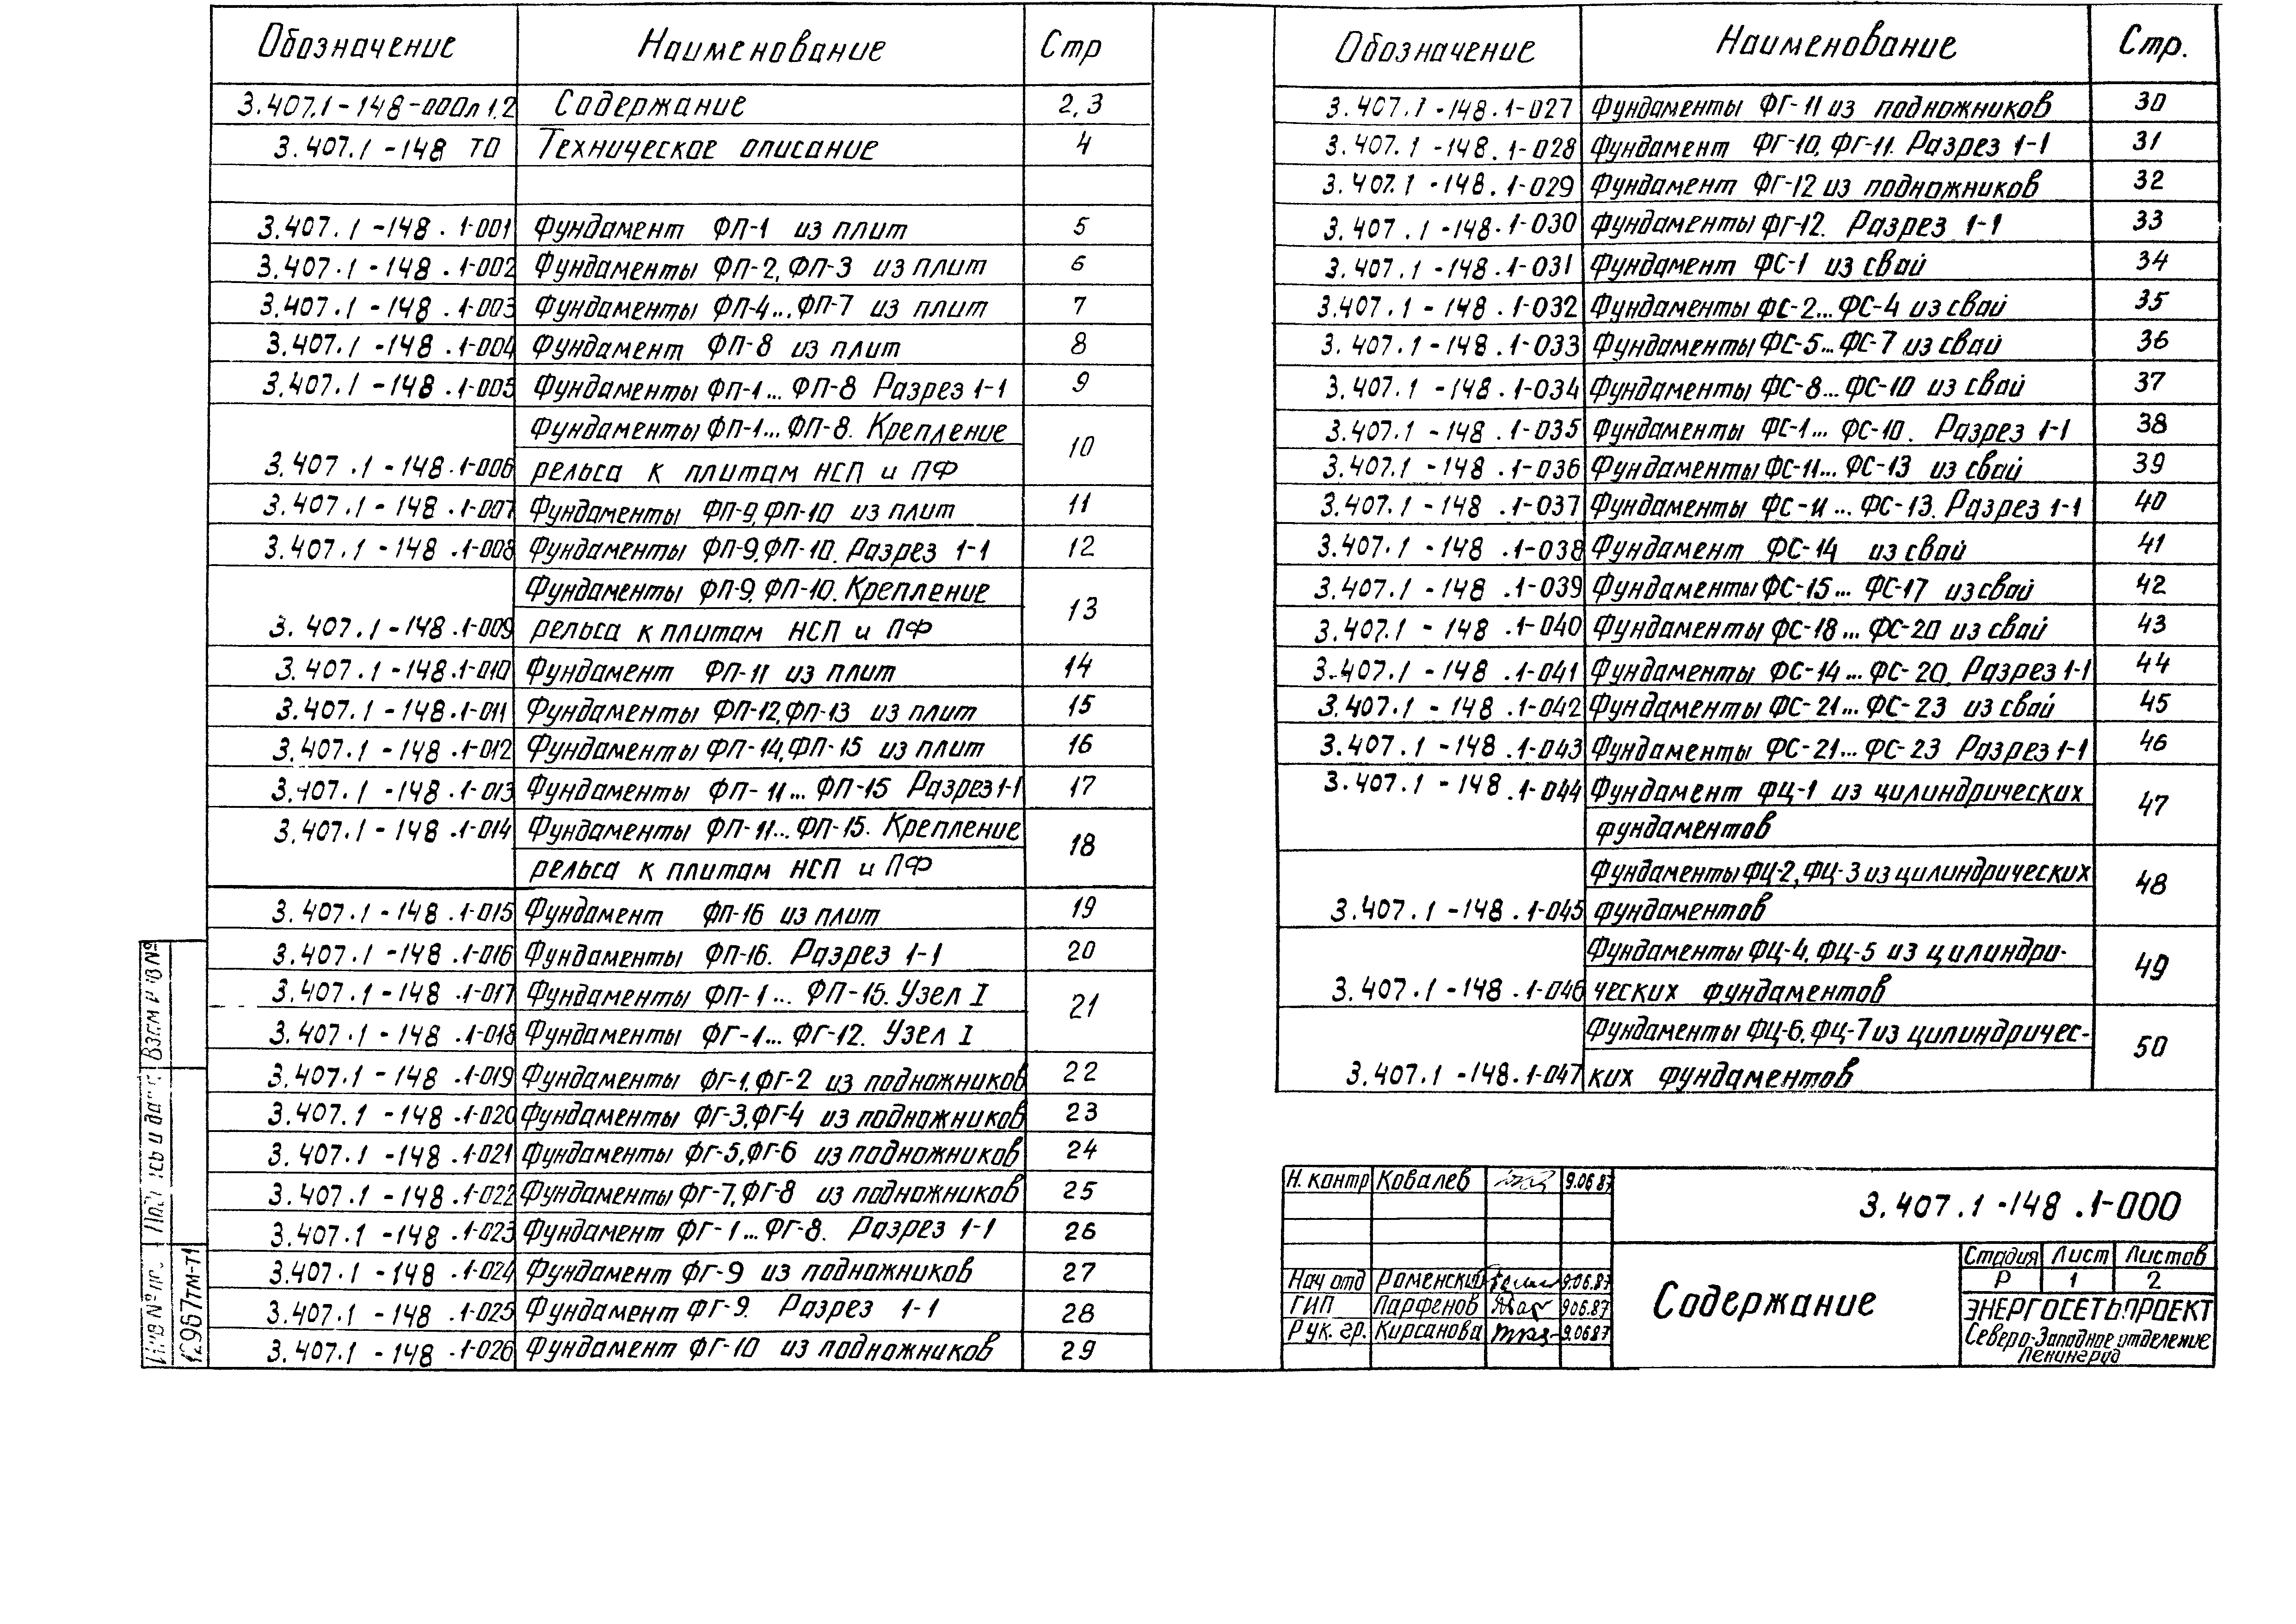 Обозначение Наименование Стр
3.407.1-148-000л 1,2 Содержание 2,3
3.407.1-148 ТО Техническое описание 4
3.407.1-148.1-001 Фундамент ФП-1 из плит 5
3.407.1-148.1-002 Фундаменты ФП-2, ФП-3 из плит 6
3.407.1-148.1-003 Фундаменты ФП-4...ФП-7 из плит 7
3.407.1-148.1-004 Фундамент ФП-8 из плит 8
3.407.1-148.1-005 Фундаменты ФП-1...ФП-8 Разрез 1-1 9
Фундаменты ФП-1...ФП-8. Крепление
3.407.1-148.1-006 рельса к плитам НСП и ПФ 10
3.407.1-148.1-007 Фундаменты ФП-9, ФП-10 из плит 11
3.407.1-148.1-008 Фундаменты ФП-9, ФП-10. Разрез 1-1 12
Фундаменты ФП-9, ФП-10. Крепление
3.407.1-148.1-009 рельса к плитам НСП и ПФ 13
3.407.1-148.1-010 Фундамент ФП-11 из плит 14
3.407.1-148.1-011 Фундаменты ФП-12, ФП-13 из плит 15
3.407.1-148.1-012 Фундаменты ФП-14, ФП-15 из плит 16
3.407.1-148.1-013 Фундаменты ФП-11...ФП-15 Разрез 1-1 17
3.407.1-148.1-014 Фундаменты ФП-11...ФП-15. Крепление 18
рельса к плитам НСП и ПФ
3.407.1-148.1-015 Фундамент ФП-16 из плит 19
3.407.1-148.1-016 Фундаменты ФП-16. Разрез 1-1 20
3.407.1-148.1-017 Фундаменты ФП-1...ФП-16. Узел I 21
3.407.1-148.1-018 Фундаменты ФГ-1...ФГ-12. Узел I
3.407.1-148.1-019 Фундаменты ФГ-1, ФГ-2 из подножников 22
3.407.1-148.1-020 Фундаменты ФГ-3, ФГ-4 из подножников 23
3.407.1-148.1-021 Фундаменты ФГ-5, ФГ-6 из подножников 24
3.407.1-148.1-022 Фундаменты ФГ-7, ФГ-8 из подножников 25
3.407.1-148.1-023 Фундамент ФГ-1...ФГ-8. Разрез 1-1 26
3.407.1-148.1-024 Фундамент ФГ-9 из подножников 27
3.407.1-148.1-025 Фундамент ФГ-9. Разрез 1-1 28
3.407.1-148.1-026 Фундамент ФГ-10 из подножников 29
Обозначение Наименование Стр.
3.407.1-148.1-027 Фундаменты ФГ-11 из подножников 30
3.407.1-148.1-028 Фундамент ФГ-10, ФГ-11. Разрез 1-1 31
3.407.1-148.1-029 Фундамент ФГ-12 из подножников 32
3.407.1-148.1-030 Фундаменты ФГ-12. Разрез 1-1 33
3.407.1-148.1-031 Фундамент ФС-1 из свай 34
3.407.1-148.1-032 Фундаменты ФС-2...ФС-4 из свай 35
3.407.1-148.1-033 Фундаменты ФС-5...ФС-7 из свай 36
3.407.1-148.1-034 Фундаменты ФС-8...ФС-10 из свай 37
3.407.1-148.1-035 Фундаменты ФС-1...ФС-10. Разрез 1-1 38
3.407.1-148.1-036 Фундаменты ФС-11...ФС-13 из свай 39
3.407.1-148.1-037 Фундаменты ФС-11...ФС-13. Разрез 1-1 40
3.407.1-148.1-038 Фундамент ФС-14 из свай 41
3.407.1-148.1-039 Фундаменты ФС-15...ФС-17 из свай 42
3.407.1-148.1-040 Фундаменты ФС-18...ФС-20 из свай 43
3.407.1-148.1-041 Фундаменты ФС-14...ФС-20. Разрез 1-1 44
3.407.1-148.1-042 Фундаменты ФС-21...ФС-23 из свай 45
3.407.1-148.1-043 Фундаменты ФС-21...ФС-23 Разрез 1-1 46
3.407.1-148.1-044 Фундамент ФЦ-1 из цилиндрических 47
фундаментов
Фундаменты ФЦ-2, ФЦ-3 из цилиндрических
3.407.1-148.1-045 фундаментов 48
Фундаменты ФЦ-4, ФЦ-5 из цилиндри-
3.407.1-148.1-046 ческих фундаментов 49
Фундаменты ФЦ-6, ФЦ-7 из цилиндричес-
3.407.1-148.1-047 ких фундаментов 50
Н. контр Ковалев 9.06.87
3.407.1-148.1-000
Нач отд Роменский 9.06.87
ГИП Парфенов 9.06.87
Рук. гр. Кирсанова 9.06.87
Содержание
Стадия Лист Листов
Р 1 2
ЭНЕРГОСЕТЬПРОЕКТ
Северо-Западное отделение
Ленинград